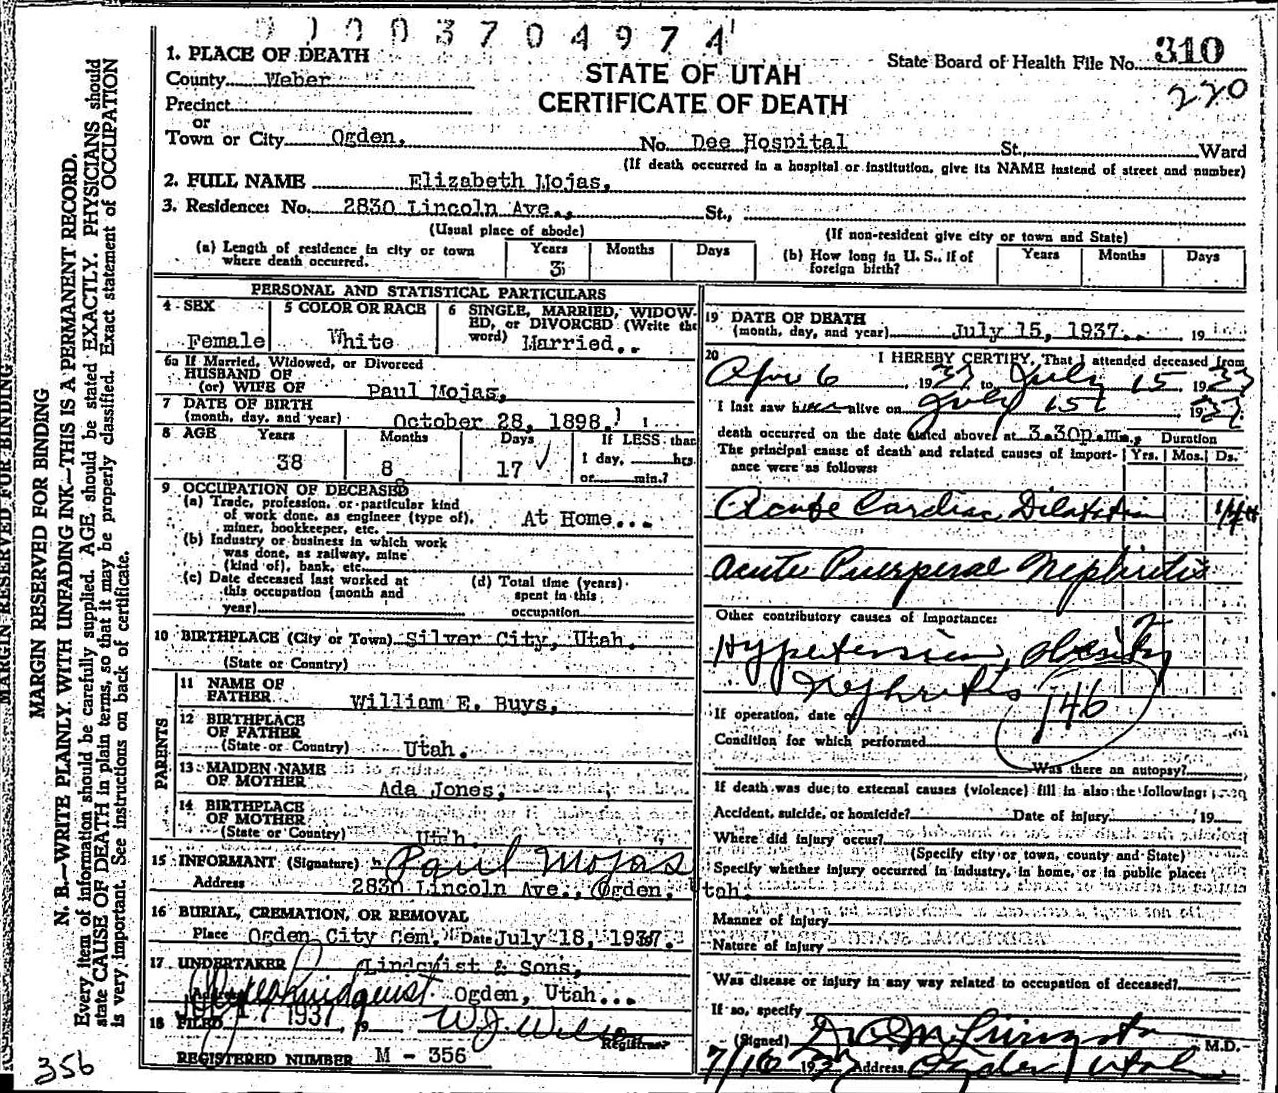 01003704974
1. PLACE OF DEATH
County Weber
Precinct
or
Town or City Ogden,
STATE OF UTAH
CERTIFICATE OF DEATH
State Board of Health File No. 310
220
No. Dee Hospital St., Ward
(If death occurred in a hospital or institution, give its NAME instead of street and number)
2. FULL NAME Elizabeth Mojas,
3. Residence: No. 2830 Lincoln Ave., St.,
(Usual place of abode) (If non-resident give city or town and State)
(a) Length of residence in city or town where death occurred. Years 3 Months Days
(b) How long in U. S., if of foreign birth? Years Months Days
PERSONAL AND STATISTICAL PARTICULARS
4 SEX Female
5 COLOR OR RACE White
6 SINGLE, MARRIED, WIDOWED, or DIVORCED (Write the word) Married..
6a If Married, Widowed, or Divorced
HUSBAND OF
(or) WIFE OF Paul Mojas,
7 DATE OF BIRTH
(month, day, and year) October 28, 1898.
8 AGE Years 38 Months 8 Days 17 If LESS than 1 day, hrs. or min.?
9 OCCUPATION OF DECEASED
(a) Trade, profession, or particular kind
of work done, as engineer (type of),
miner, bookkeeper, etc. At Home...
(b) Industry or business in which work
was done, as railway, mine
(kind of), bank, etc.
(c) Date deceased last worked at
this occupation (month and
year)
(d) Total time (years)
spent in this
occupation
10 BIRTHPLACE (City or Town) Silver City, Utah.
(State or Country)
PARENTS
11 NAME OF
FATHER William E. Buys,
12 BIRTHPLACE
OF FATHER
(State or Country) Utah.
13 MAIDEN NAME
OF MOTHER Ada Jones,
14 BIRTHPLACE
OF MOTHER
(State or Country) Utah.
15 INFORMANT (Signature) Paul Mojas
Address 2830 Lincoln Ave., Ogden, Utah.
16 BURIAL, CREMATION, OR REMOVAL
Place Ogden City Cem. Date July 18, 1937.
17 UNDERTAKER Lindquist & Sons,
Ogden, Utah...
18 FILED 17 1937, 19 W J
Registrar
REGISTERED NUMBER M - 356
19 DATE OF DEATH
(month, day, and year) July 15, 1937.. 19
20 I HEREBY CERTIFY, That I attended deceased from
Apr 6, 1937 to July 15 1937
I last saw alive on July 15 1937
death occurred on the date stated above, at 3.30p.m.,
The principal cause of death and related causes of importance were as follows:
Duration
Yrs. Mos. Ds.
Acute Cardiac Dilatation
Acute Puerperal Nephritis
Other contributory causes of importance:
Hypertension, obesity
Nephritis 146
If operation, date of
Condition for which performed
Was there an autopsy?
If death was due to external causes (violence) fill in also the following:
Accident, suicide, or homicide? Date of injury 19
Where did injury occur?
(Specify city or town, county and State)
Specify whether injury occurred in industry, in home, or in public place:
Manner of injury
Nature of injury
Was disease or injury in any way related to occupation of deceased?
If so, specify
(Signed) M.D.
7/16 1937 Address Ogden Utah
MARGIN RESERVED FOR BINDING
MARGIN RESERVED FOR BINDING
N. B.—WRITE PLAINLY, WITH UNFADING INK—THIS IS A PERMANENT RECORD.
Every item of information should be carefully supplied. AGE should be stated EXACTLY. PHYSICIANS should
state CAUSE OF DEATH in plain terms, so that it may be properly classified. Exact statement of OCCUPATION
is very important. See instructions on back of certificate.
356